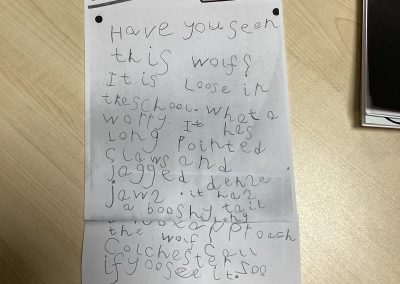 Have you seen
this wolf?
It is loose in
the school. What a
worry. It has
long pointed
claws and
jagged denze
jawz. it haz
a booshy tail
approach
the wolf
if yoo see it.